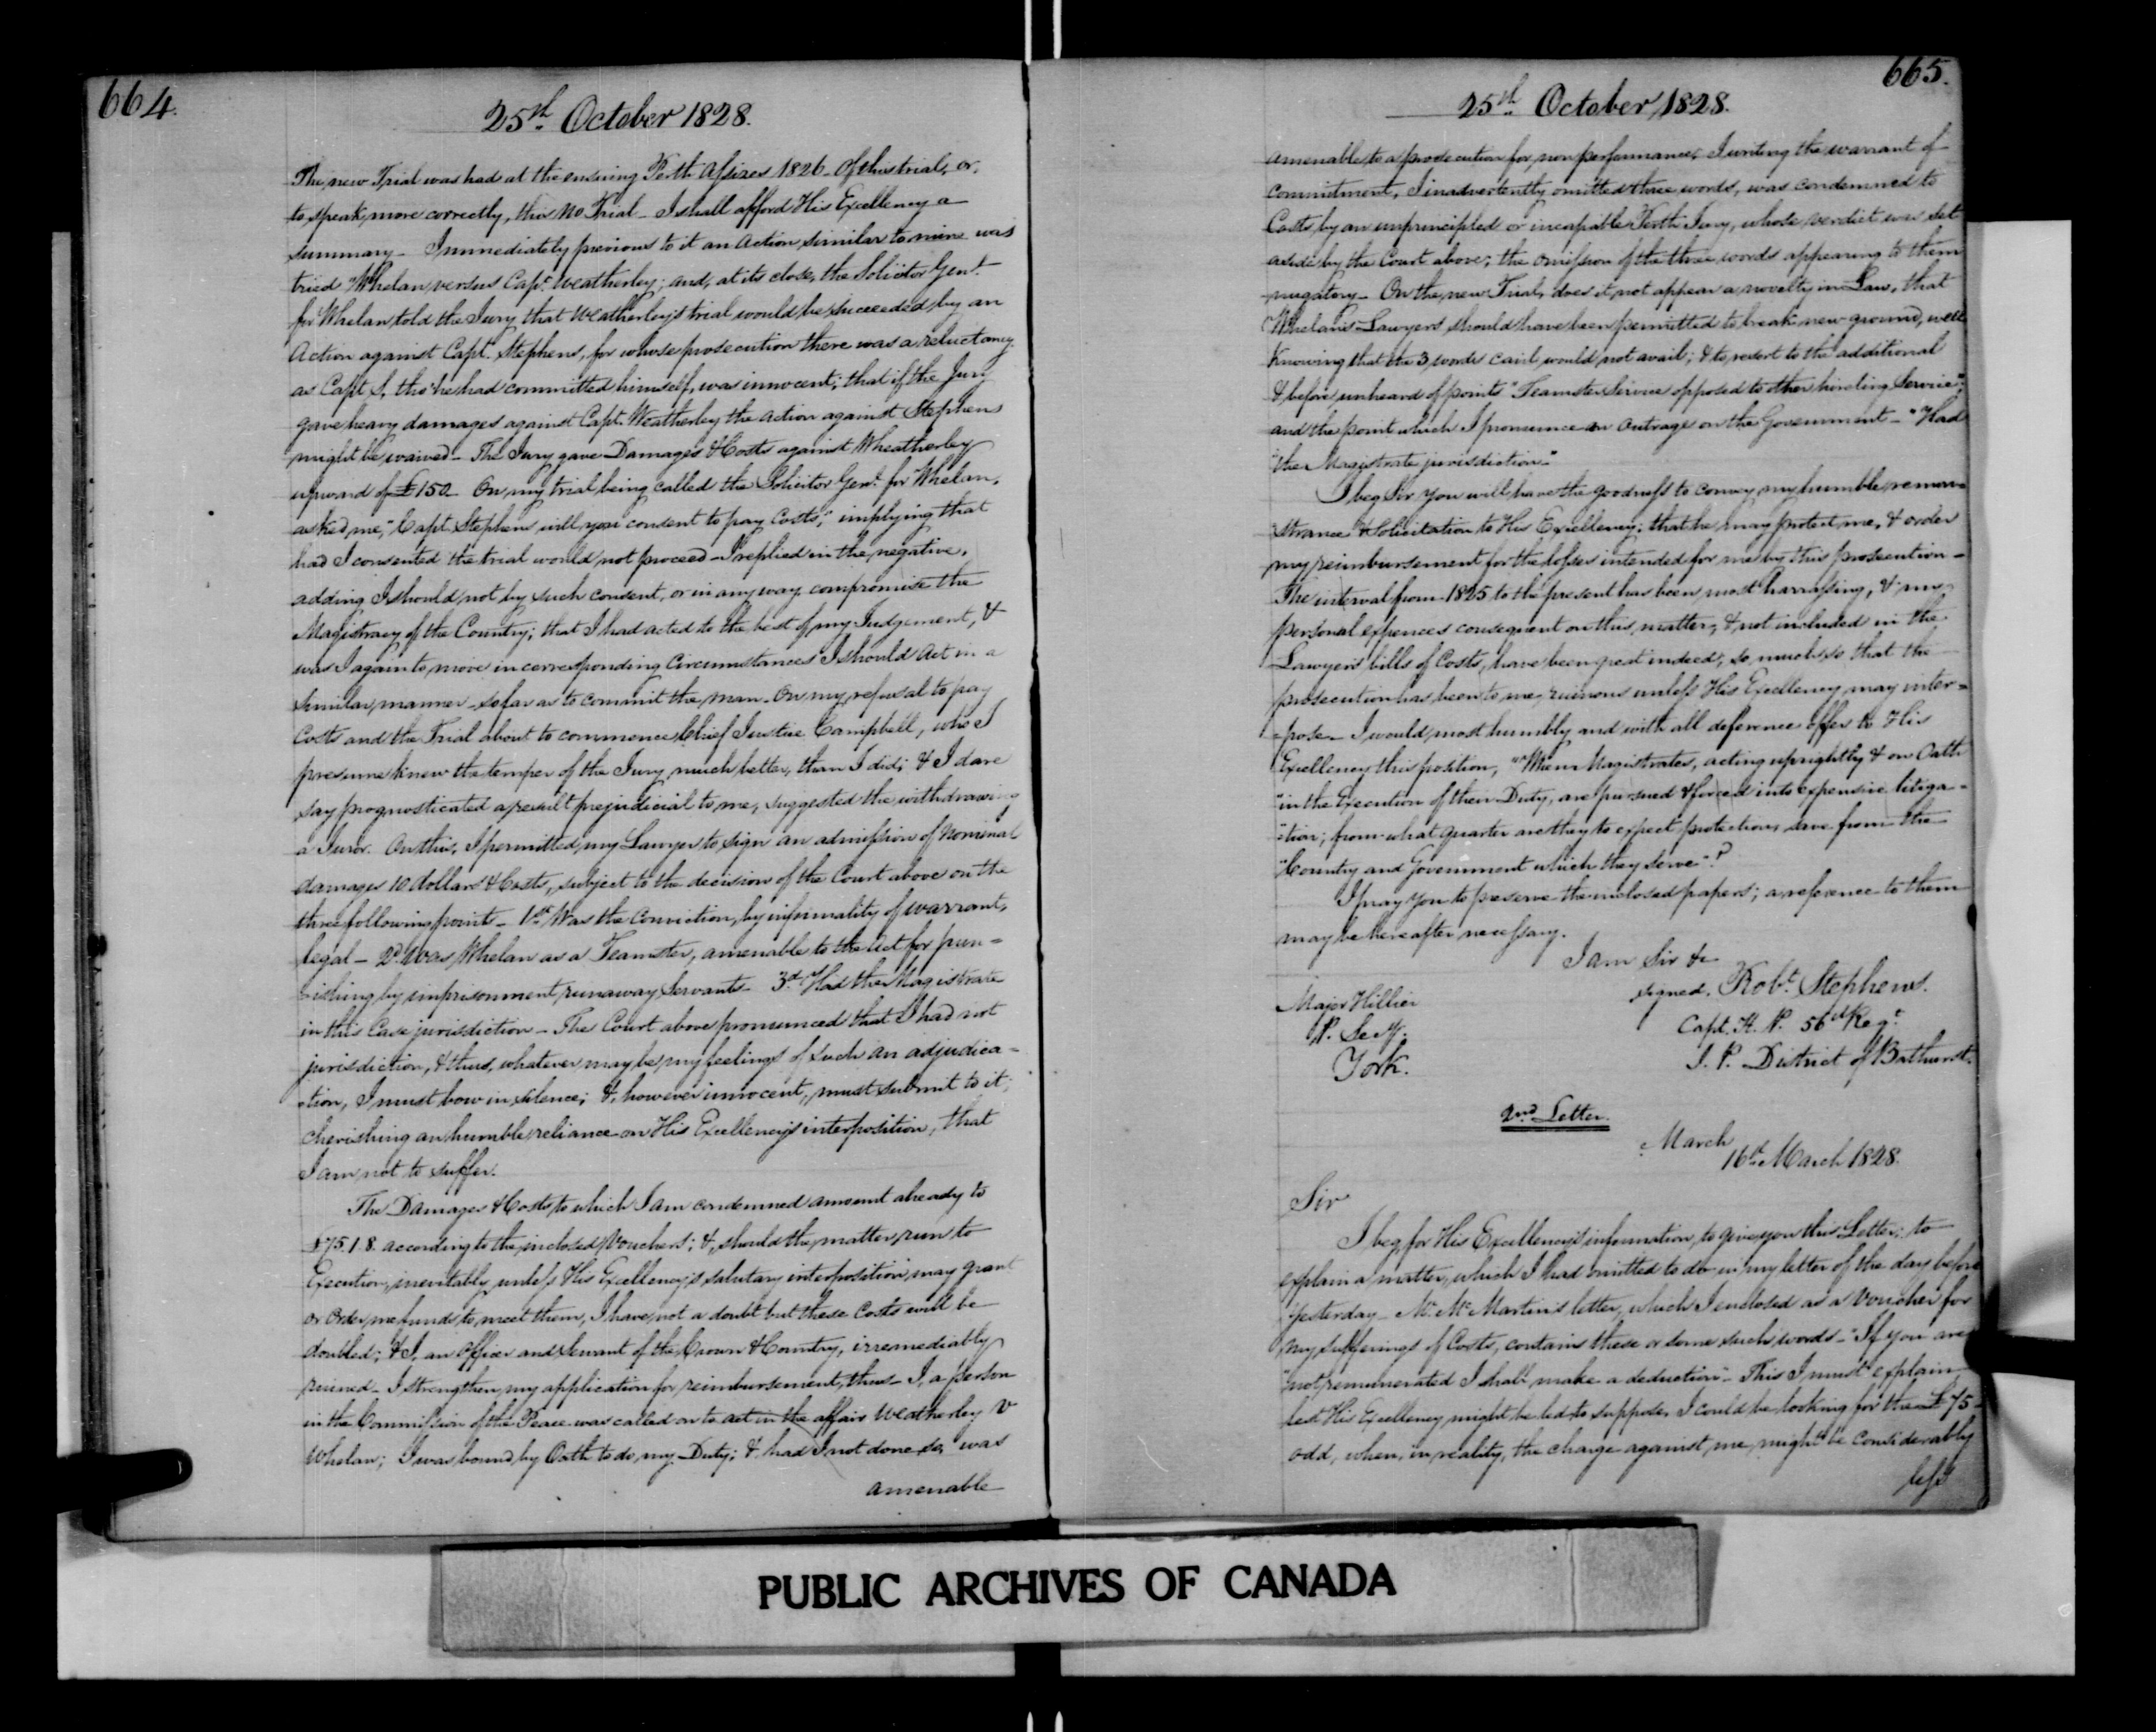 664.
25th October 1828.
The new Trial was had at the ensuing Perth Assizes 1826 - Of this trial, or,
to speak more correctly, this No Trial - I shall afford His Excellency a
summary - Immediately previous to it an Action similar to mine was
tried "Whelan versus Capt. Weatherley; and, at its close, the Solicitor Genl.
for Whelan told the Jury that Weatherley's trial would be succeeded by an
Action against Capt. Stephens, for whose prosecution there was a reluctancy
as Capt S, tho' he had committed himself, was innocent; that if the Jury
gave heavy damages against Capt. Weatherley the action against Stephens
might be waived - The Jury gave Damages & Costs against Wheatherley
upward of £150 - On my trial being called the Solicitor Genl. for Whelan,
asked me, "Capt. Stephens will you consent to pay Costs," implying that
had I consented the trial would not proceed - I replied in the negative,
adding I should not by such consent, or in any way compromise the
Magistracy of the Country; that I had acted to the best of my Judgement, &
was I again to move in corresponding Circumstances I should Act in a
similar manner - so far as to commit the man - On my refusal to pay
Costs and the Trial about to commence Chief Justice Campbell, who I
presume knew the temper of the Jury much better than I did; & I dare
say prognosticated a result prejudicial to me, suggested the withdrawing
a Juror. On this, I permitted my Lawyer to sign an admission of nominal
damages 10 dollars & Costs, subject to the decision of the Court above on the
three following points - 1st. Was the Conviction, by informality of warrant,
legal - 2d. Was Whelan as a Teamster, amenable to the Act for pun=
=ishing by imprisonment runaway Servants - 3d. Had the Magistrate
in this Case jurisdiction - The Court above pronounced that I had not
jurisdiction, & thus, whatever may be my feelings of such an adjudica=
=tion, I must bow in silence; &, however innocent, must submit to it;
cherishing an humble reliance on His Excellency's interposition, that
I am not to suffer.
The Damages & Costs to which I am condemned amount already to
£75.1.8. according to the inclosed Vouchers; &, should the matter run to
Execution, inevitably, unless His Excellency's salutary interposition may grant
or Order me funds to meet them, I have not a doubt but these Costs will be
doubled; & I, an Officer and servant of the Crown & Country, irremediably
ruined - I strengthen my application for reimbursement, thus - I, a person
in the Commission of the Peace was called on to act in the affair Weatherley V
Whelan; I was bound by Oath to do my Duty; & had I not done so, was
amenable
665.
25th October 1828.
amenable to a prosecution for non performance, I writing the warrant of
commitment, I inadvertently omitted three words, was condemned to
Costs by an unprincipled or incapable Perth Jury, whose verdict was set
aside by the Court above; the omission of the three words appearing to them
nugatory - On the new Trial, does it not appear a novelty in Law, that
Whelan's Lawyers should have been permitted to break new ground, well
knowing that the 3 words cavil would not avail; & to resort to the additional
& before unheard of points "Teamster Service opposed to other hireling Service";
and the point which I pronounce an outrage on the Government - "Had
"the Magistrate jurisdiction"
I beg Sir you will have the goodness to convey my humble remon=
strance & Solicitation to His Excellency; that he may protect me, & order
my reimbursement for the losses intended for me by this prosecution -
The interval from 1825 to the present has been most harrassing, & my
personal expences consequent on this matter, & not included in the
Lawyer's bills of Costs, have been great indeed, so much so that the
prosecution has been to me, ruinous unless His Excellency may inter=
=pose - I would most humbly and with all deference offer to His
Excellency this position, "When Magistrates, acting uprightly & on Oath
"in the Execution of their Duty, are pursued & forced into expensive litiga=
"=tion; from what quarter are they to expect protection, save from the
"Country and Government which they serve"?
I pray you to preserve the inclosed papers; a reference to them
may be hereafter necessary.
I am Sir &c
signed. Robt. Stephens.
Capt. H. P. 56th Regt.
J. P. District of Bathurst.
Major Hillier
P. Secy.
York.
2nd. Letter.
March
16th March 1828.
Sir
I beg, for His Excellency's information, to give you this Letter; to
explain a matter, which I had omitted to do in my letter of the day before
yesterday - Mr. McMartin's letter, which I enclosed as a Voucher for
my sufferings of Costs, contains these or some such words - "If you are
"not remunerated I shall make a deduction" - This I must explain,
lest His Excellency might be led to suppose, I could be looking for the £75-
odd, when, in reality, the charge against me might be Considerably
less
PUBLIC ARCHIVES OF CANADA